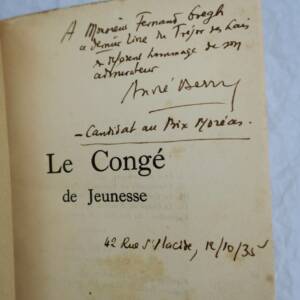 A Monsieur Fernand Gregh
ce dernier Livre du Trésor des Lais
hommage de son
admirateur
André Berry
- Candidat au Prix Moréas.
Le Congé
de Jeunesse
42 Rue St Placide, 12/10/35